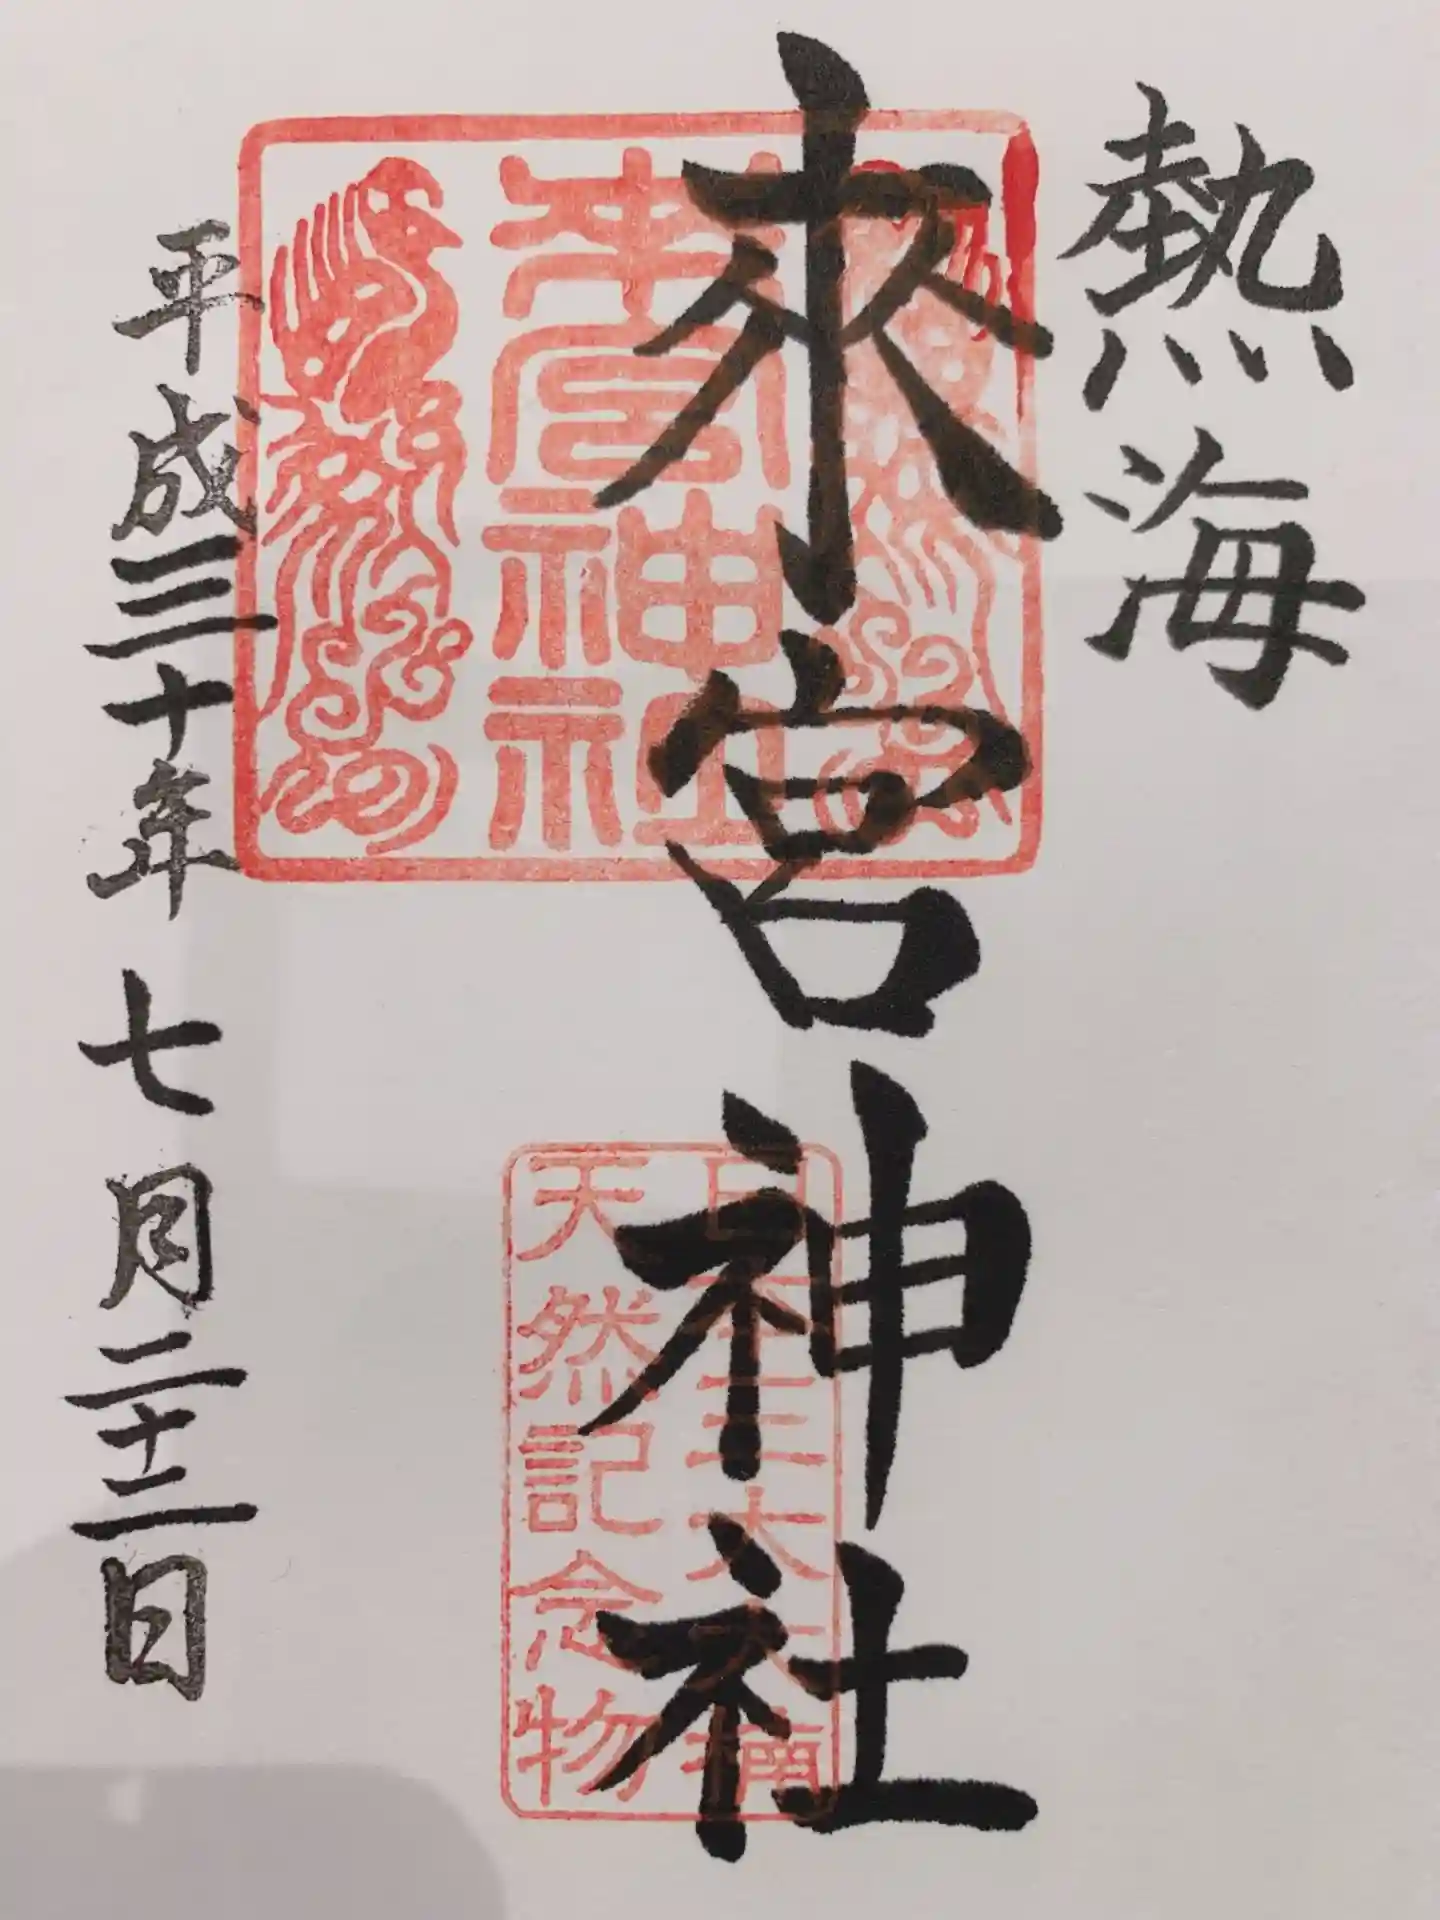 熱海
來宮神社
來宮神社
日本三大大楠
天然記念物
平成三十年七月二十二日